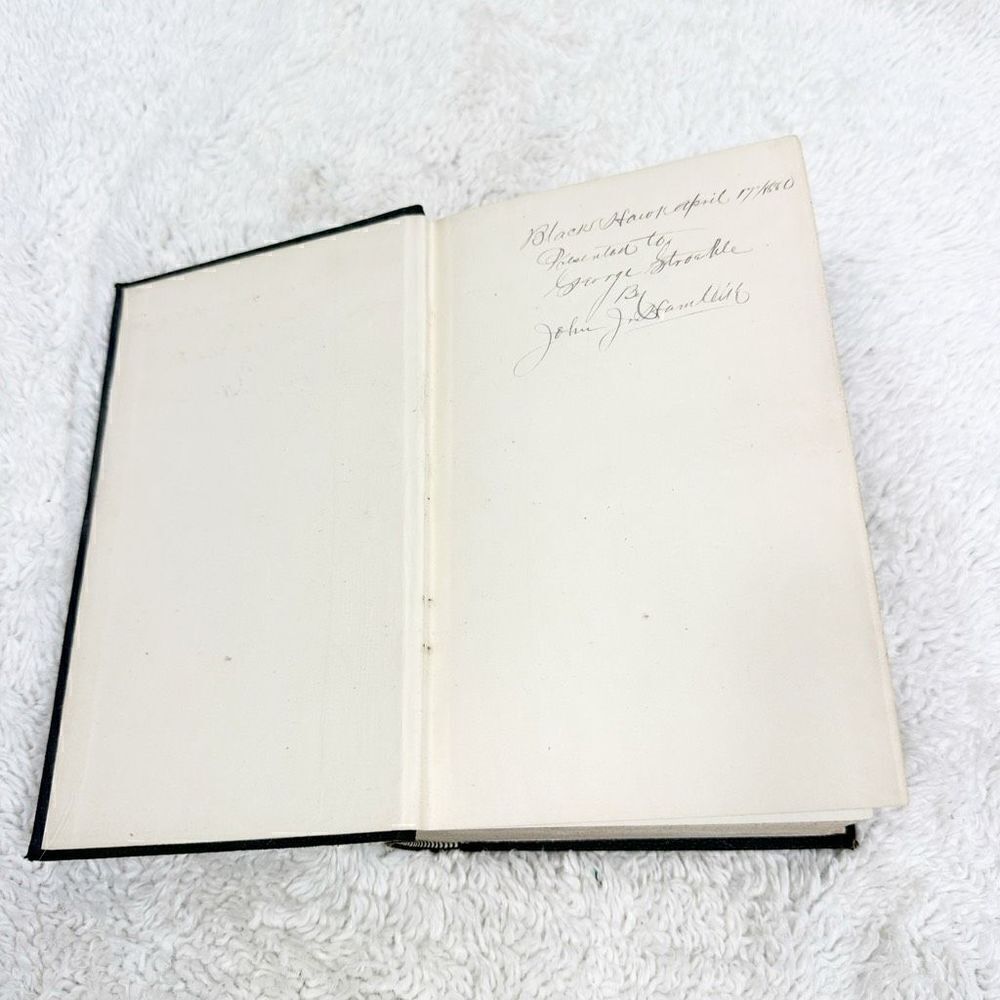 Black Hawk April 17th/1880
Presented to
George Stroehle
By
John Jr. Hambly